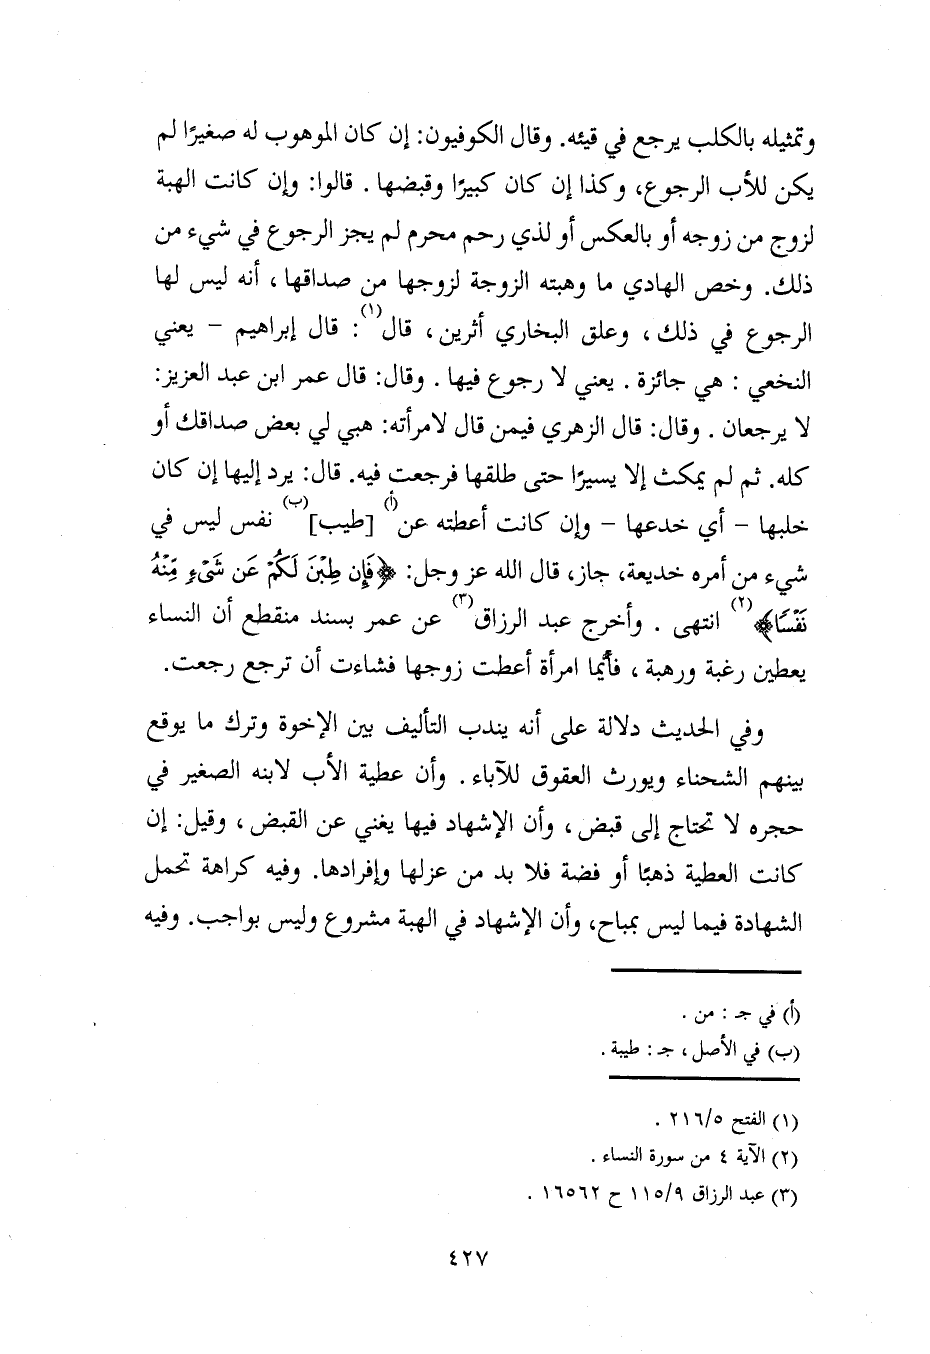 وتمثيله بالكلب يرجع في قيئه. وقال الكوفيون: إن كان الموهوب له صغيرًا لم
يكن للأب الرجوع، وكذا إن كان كبيرًا وقبضها. قالوا: وإن كانت الهبة
لزوج من زوجه أو بالعكس أو لذي رحم محرم لم يجز الرجوع في شيء من
ذلك. وخص الهادي ما وهبته الزوجة لزوجها من صداقها، أنه ليس لها
الرجوع في ذلك، وعلق البخاري أثرين، قال(١): قال إبراهيم - يعني
النخعي: هي جائزة. يعني لا رجوع فيها. وقال: قال عمر ابن عبد العزيز:
لا يرجعان. وقال: قال الزهري فيمن قال لامرأته: هبي لي بعض صداقك أو
كله. ثم لم يمكث إلا يسيرًا حتى طلقها فرجعت فيه. قال: يرد إليها إن كان
خلبها - أي خدعها - وإن كانت أعطته عن(أ) [طيب](ب) نفس ليس في
شيء من أمره خديعة، جاز، قال الله عز وجل: ﴿فَإِن طِبْنَ لَكُمْ عَن شَىْءٍ مِّنْهُ
نَفْسًا﴾(٢) انتهى. وأخرج عبد الرزاق(٣) عن عمر بسند منقطع أن النساء
يعطين رغبة ورهبة، فأيما امرأة أعطت زوجها فشاءت أن ترجع رجعت.
وفي الحديث دلالة على أنه يندب التأليف بين الإخوة وترك ما يوقع
بينهم الشحناء ويورث العقوق للآباء. وأن عطية الأب لابنه الصغير في
حجره لا تحتاج إلى قبض، وأن الإشهاد فيها يغني عن القبض، وقيل: إن
كانت العطية ذهبًا أو فضة فلا بد من عزلها وإفرادها. وفيه كراهة تحمل
الشهادة فيما ليس بمباح، وأن الإشهاد في الهبة مشروع وليس بواجب. وفيه
(أ) في جـ: من.
(ب) في الأصل، جـ: طيبة.
(١) الفتح ٢١٦/٥.
(٢) الآية ٤ من سورة النساء.
(٣) عبد الرزاق ١١٥/٩ ح ١٦٥٦٢.
٤٢٧